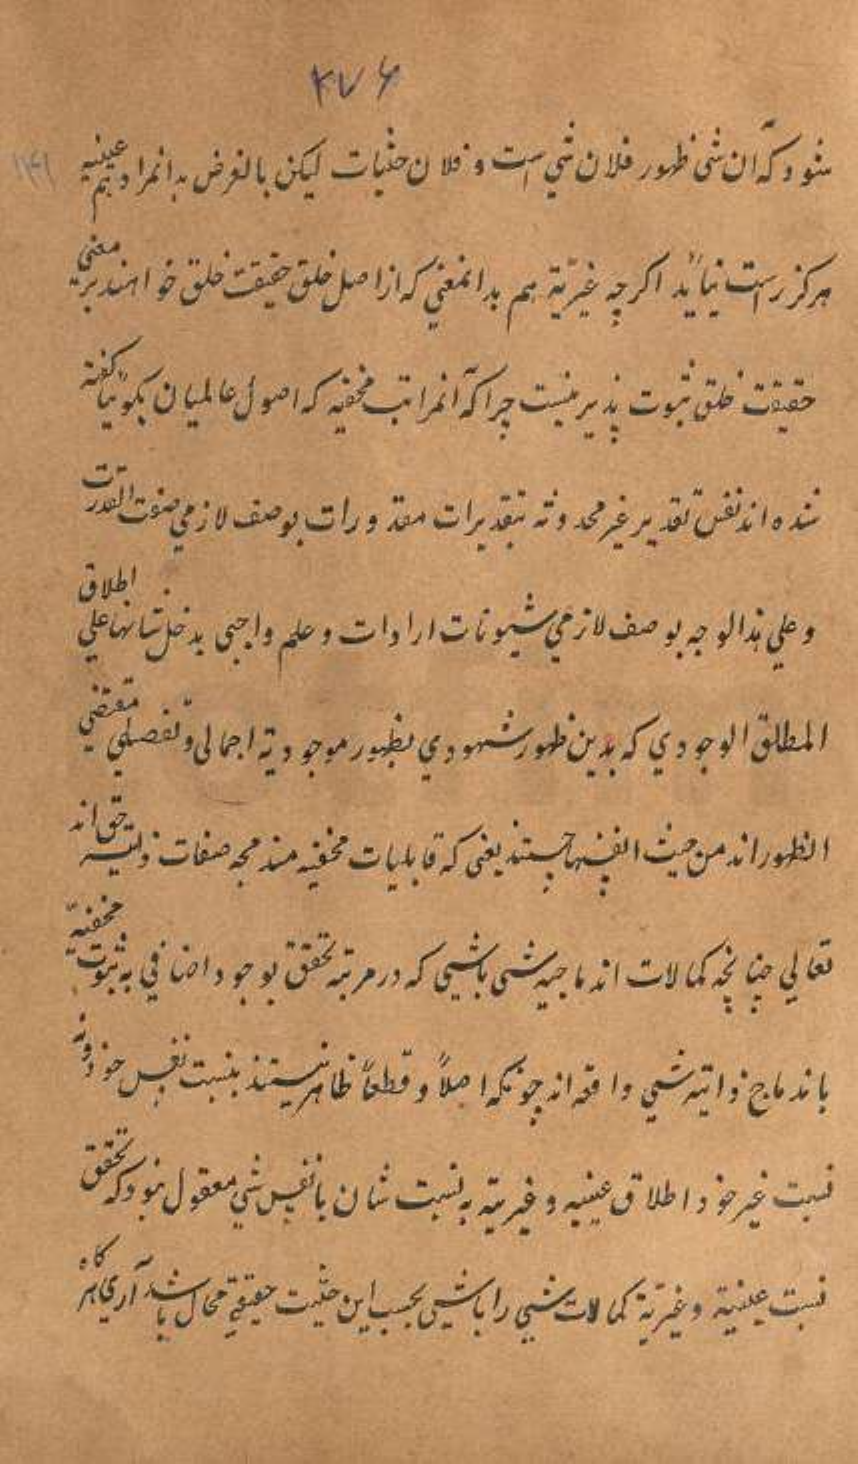 ۴۷۶
شود که آن شی ظهور فلان شی است و فلان حقیات لیکن بالغرض بدانمراد هم عینیه
هرگز راست نیاید اگرچه غیریّة هم بدانمعنی که از اصل خلق حقیقت خلق خواهند بر معنی
حقیقت خلق ثبوت پذیر نیست چرا که آنمراتب مخفیه که اصول عالمیان بگویا گفته
شده اند نفس تقدیر غیر محدوثه بتقدیرات مقدورات بوصف لازمی صفوت القدرت
و علی هذا الوجه بوصف لازمی شیونات ارادات و علم واجبی بدخل شانها علی اطلاق
المطلق الوجودی که بدین ظهور شهودی بظهور موجودیّة اجمالی و تفصیلی مقتضی
الظهور اند من حیث انفسها چیستند یعنی که قابلیات مخفیه مندمجه صفات ذاتیه حق اند
تعالی چنانچه کمالات اندماجیه شی باشیی که در مرتبه تحقق بوجود اضافی به ثبوت مخفیه
باندماج ذاتیه شیی واقعه اند چونکه اصلاً و قطعاً ظاهر نیستند بنسبت نفس خود و نه
نسبت غیر خود اطلاق عینیه و غیریّه به نسبت شان با نفس شی معقول نبود که تحقق
نسبت عینیة و غیریّة کمالات شیی را باشیی بحسب این حثیت حقیقیّة محال باشد آری هر گاه